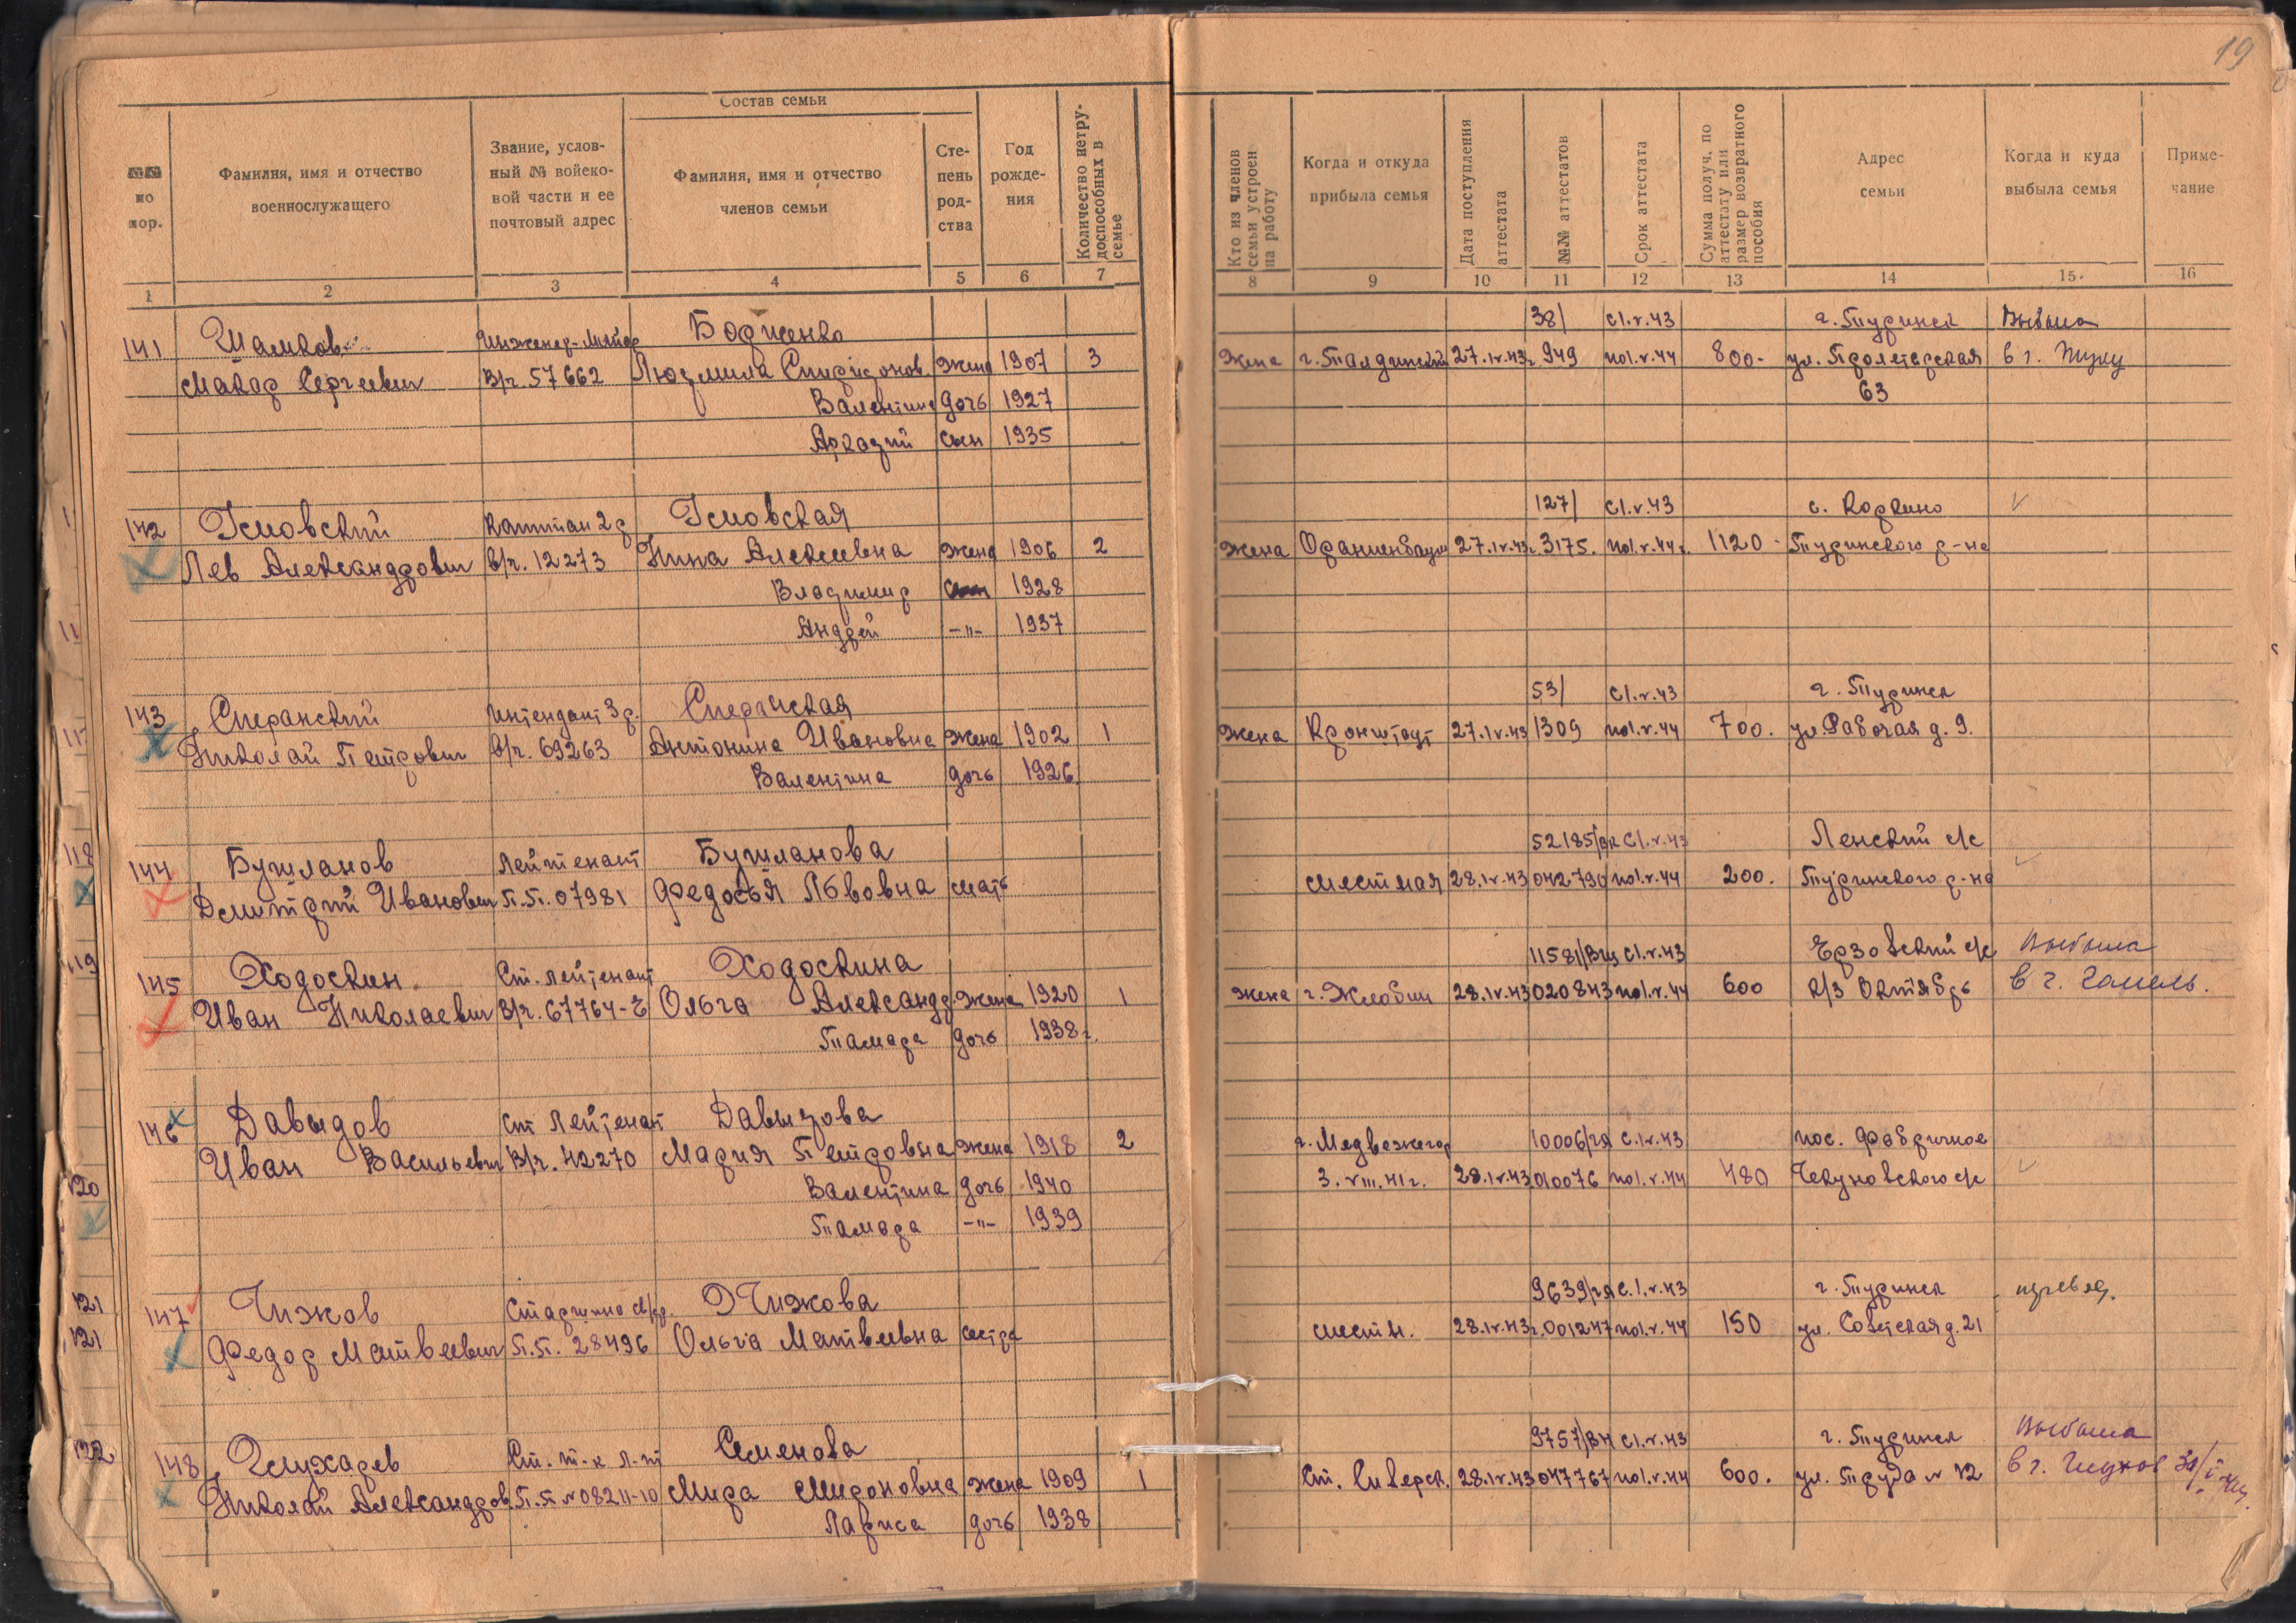 19
Состав семьи
№№ по пор.
Фамилия, имя и отчество военнослужащего
Звание, услов-ный № войско-вой части и ее почтовый адрес
Фамилия, имя и отчество членов семьи
Сте-пень род-ства
Год рожде-ния
Количество нетру-доспособных в семье
Кто из членов семьи устроен на работу
Когда и откуда прибыла семья
Дата поступления аттестата
№№ аттестатов
Срок аттестата
Сумма получ. по аттестату или размер возвратного пособия
Адрес семьи
Когда и куда выбыла семья
Приме-чание
1 2 3 4 5 6 7 8 9 10 11 12 13 14 15. 16
141 Шамков Инженер-Майор Бодженко 38/ с1.v.43 г. Туринск Выбыла
Макар Сергеевич В/ч. 57662 Людмила Спиридонов. жена 1907 3 Жена 27.IV.43г. 949 по1.v.44 800- ул. Пролетарская в г.
Валентина дочь 1927 63
Аркадий сын 1935
142 Капитан 2 р 127/ с1.v.43 с. Коркино
Лев Александрович в/ч. 12273 Нина Алексеевна жена 1906 2 Жена Ораниенбаум 27.IV.43г. 3175. по1.v.44г. 1120- Туринского р-на
Владимир сын 1928
Андрей -"- 1937
143 Сперанский Интендант 3 р. Сперанская 53/ с1.v.43 г. Туринск
Николай Петрович в/ч. 69263 Антонина Ивановна жена 1902 1 Жена Кронштадт 27.IV.43 1309 по1.v.44 700. ул. Рабочая д. 9.
Валентина дочь 1926
144 Бушланов лейтенант Бушланова 52185/ с1.v.43 Ленский с/с
Дмитрий Иванович П.П. 07981 Федосья Львовна мать местная 28.IV.43 042790 по1.v.44 200. Туринского р-на
145 Ходоскин Ст. лейтенант Ходоскина 11581/ с1.v.43 Ерзовский с/с Выбыла
Иван Николаевич В/ч. 67764-Е Ольга Александр жена 1920 1 жена г. Жлобин 28.IV.43 020843 по1.v.44 600 к/з Октябрь в г. Гомель.
Тамара дочь 1938г.
146 Давыдов Ст Лейтенант Давыдова г. Медвежегор 10006/ с.1.v.43 пос. Фабричное
Иван Васильевич В/ч. 42270 Мария Петровна жена 1918 2 3.VIII.41г. 28.IV.43 010076 по1.v.44 480 Чекуновского с/с
Валентина дочь 1940
Тамара -"- 1939
147 Чижов Старшина Чижова 9639/ с.1.v.43 г. Туринск
Федор Матвеевич П.П. 28496 Ольга Матвеевна сестра местн. 28.IV.43г. 001247 по1.v.44 150 ул. Советская д. 21
148 Ст. т-к л-т Семенова 9757/ с1.v.43 г. Туринск Выбыла
Николай Александров. П.П. № 08211-10 Мира Мироновна жена 1909 1 Ст. Сиверск. 28.IV.43 047767 по1.v.44 600. ул. Труда № 12 в г.
Лариса дочь 1938
118
119
120
121
121
122